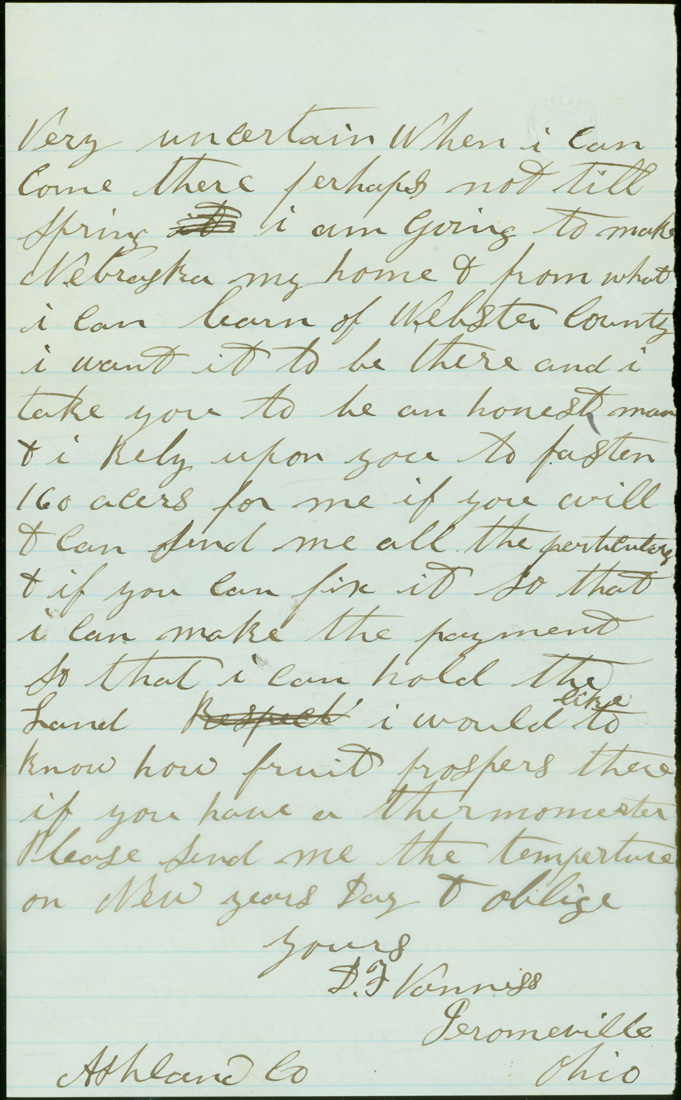 Very uncertain When i can
Come there perhaps not till
Spring it i am Going to make
Nebraska my home & from what
i Can learn of Webster County
i want it to be there and i
take you to be an honest man
& i Rely upon you to fasten
160 acers for me if you will
& Can send me all the perticulers
& if you Can fix it so that
i Can make the payment
so that i can hold the
Land Respect i would like to
Know how fruit prospers there
if you have a thermomester
Please send me the temperture
on New years Day & oblige
yours
D.F Vanniss
Jeromeville
Ashland Co Ohio